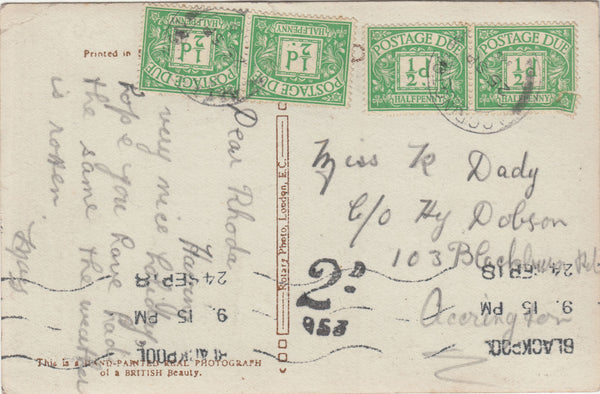 Printed in
½d
POSTAGE DUE
HALFPENNY
½d
POSTAGE DUE
HALFPENNY
POSTAGE DUE
½d
HALFPENNY
POSTAGE DUE
½d
HALFPENNY
Dear Rhoda
Having
very nice holiday
hope you have had
the same the weather
is rotten.
Rotary Photo, London, E.C.
Miss R Dady
C/o Hy Dobson
103 Blackburn Rd
Accrington
2D
953
BLACKPOOL
9. 15 PM
24 SEP 18
BLACKPOOL
9. 15 PM
24 SEP 18
This is a HAND-PAINTED REAL PHOTOGRAPH
of a BRITISH Beauty.